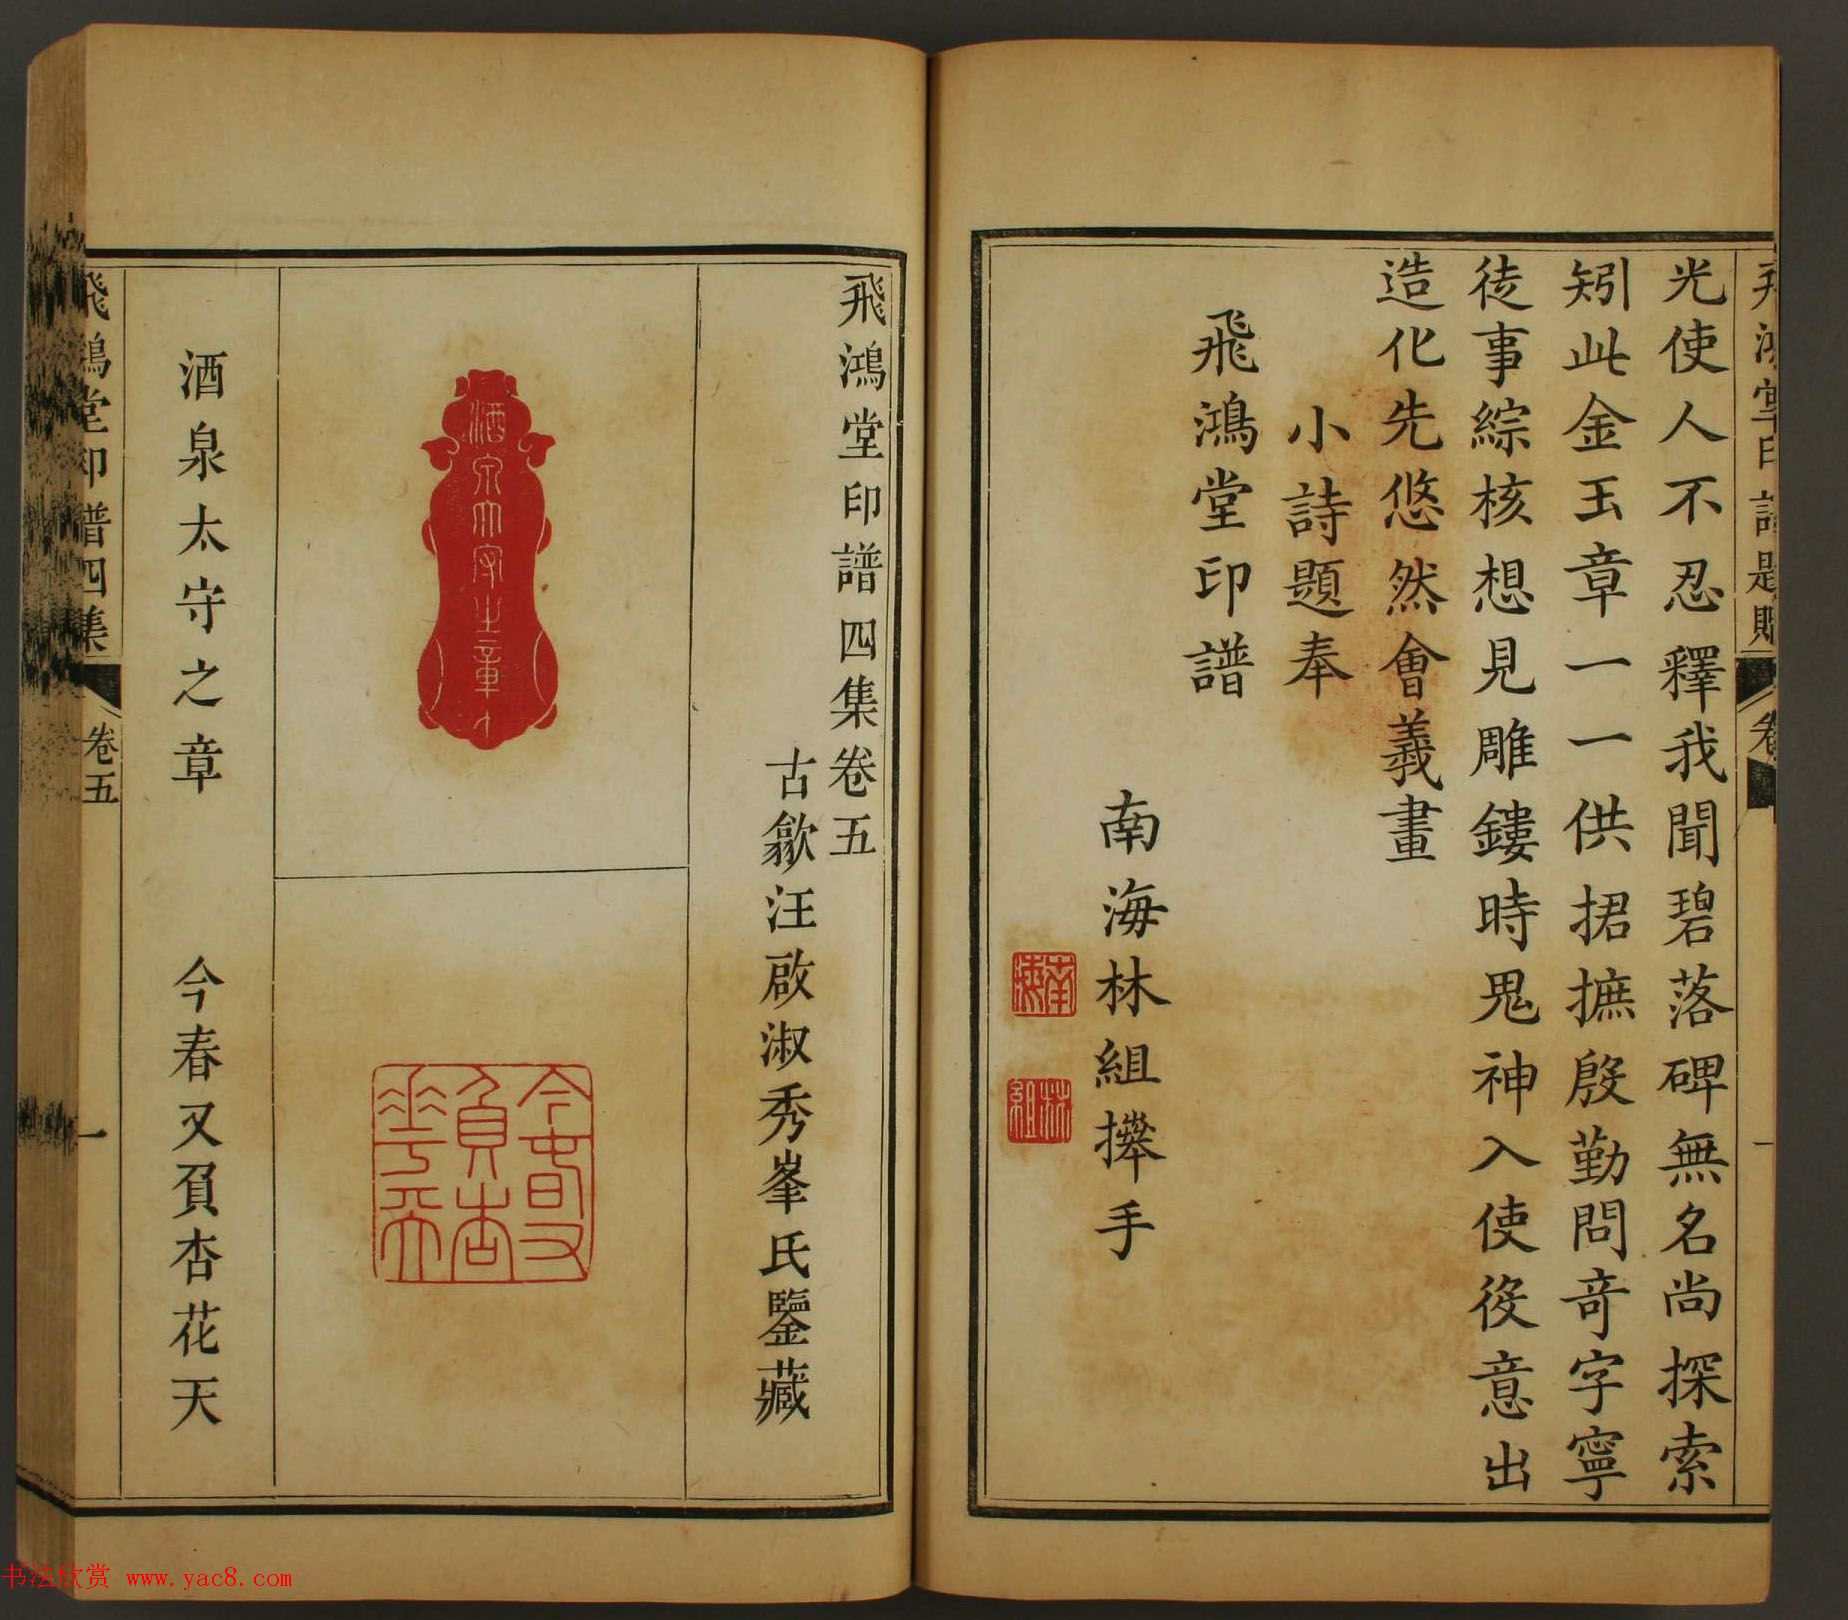 光使人不忍釋我聞碧落碑無名尚探索
矧此金玉章一一供捃摭殷勤問奇字寧
徒事綜核想見雕鏤時鬼神入使役意出
造化先悠然會義畫
小詩題奉
飛鴻堂印譜
南海林組撵手
南海
林組
飛鴻堂印譜四集卷五
古歙汪啟淑秀峯氏鑒藏
酒泉太守之章
今春又負杏花天
酒泉太守之章
今春又負杏花天
飛鴻堂印譜四集
卷五
一
书法欣赏 www.yac8.com